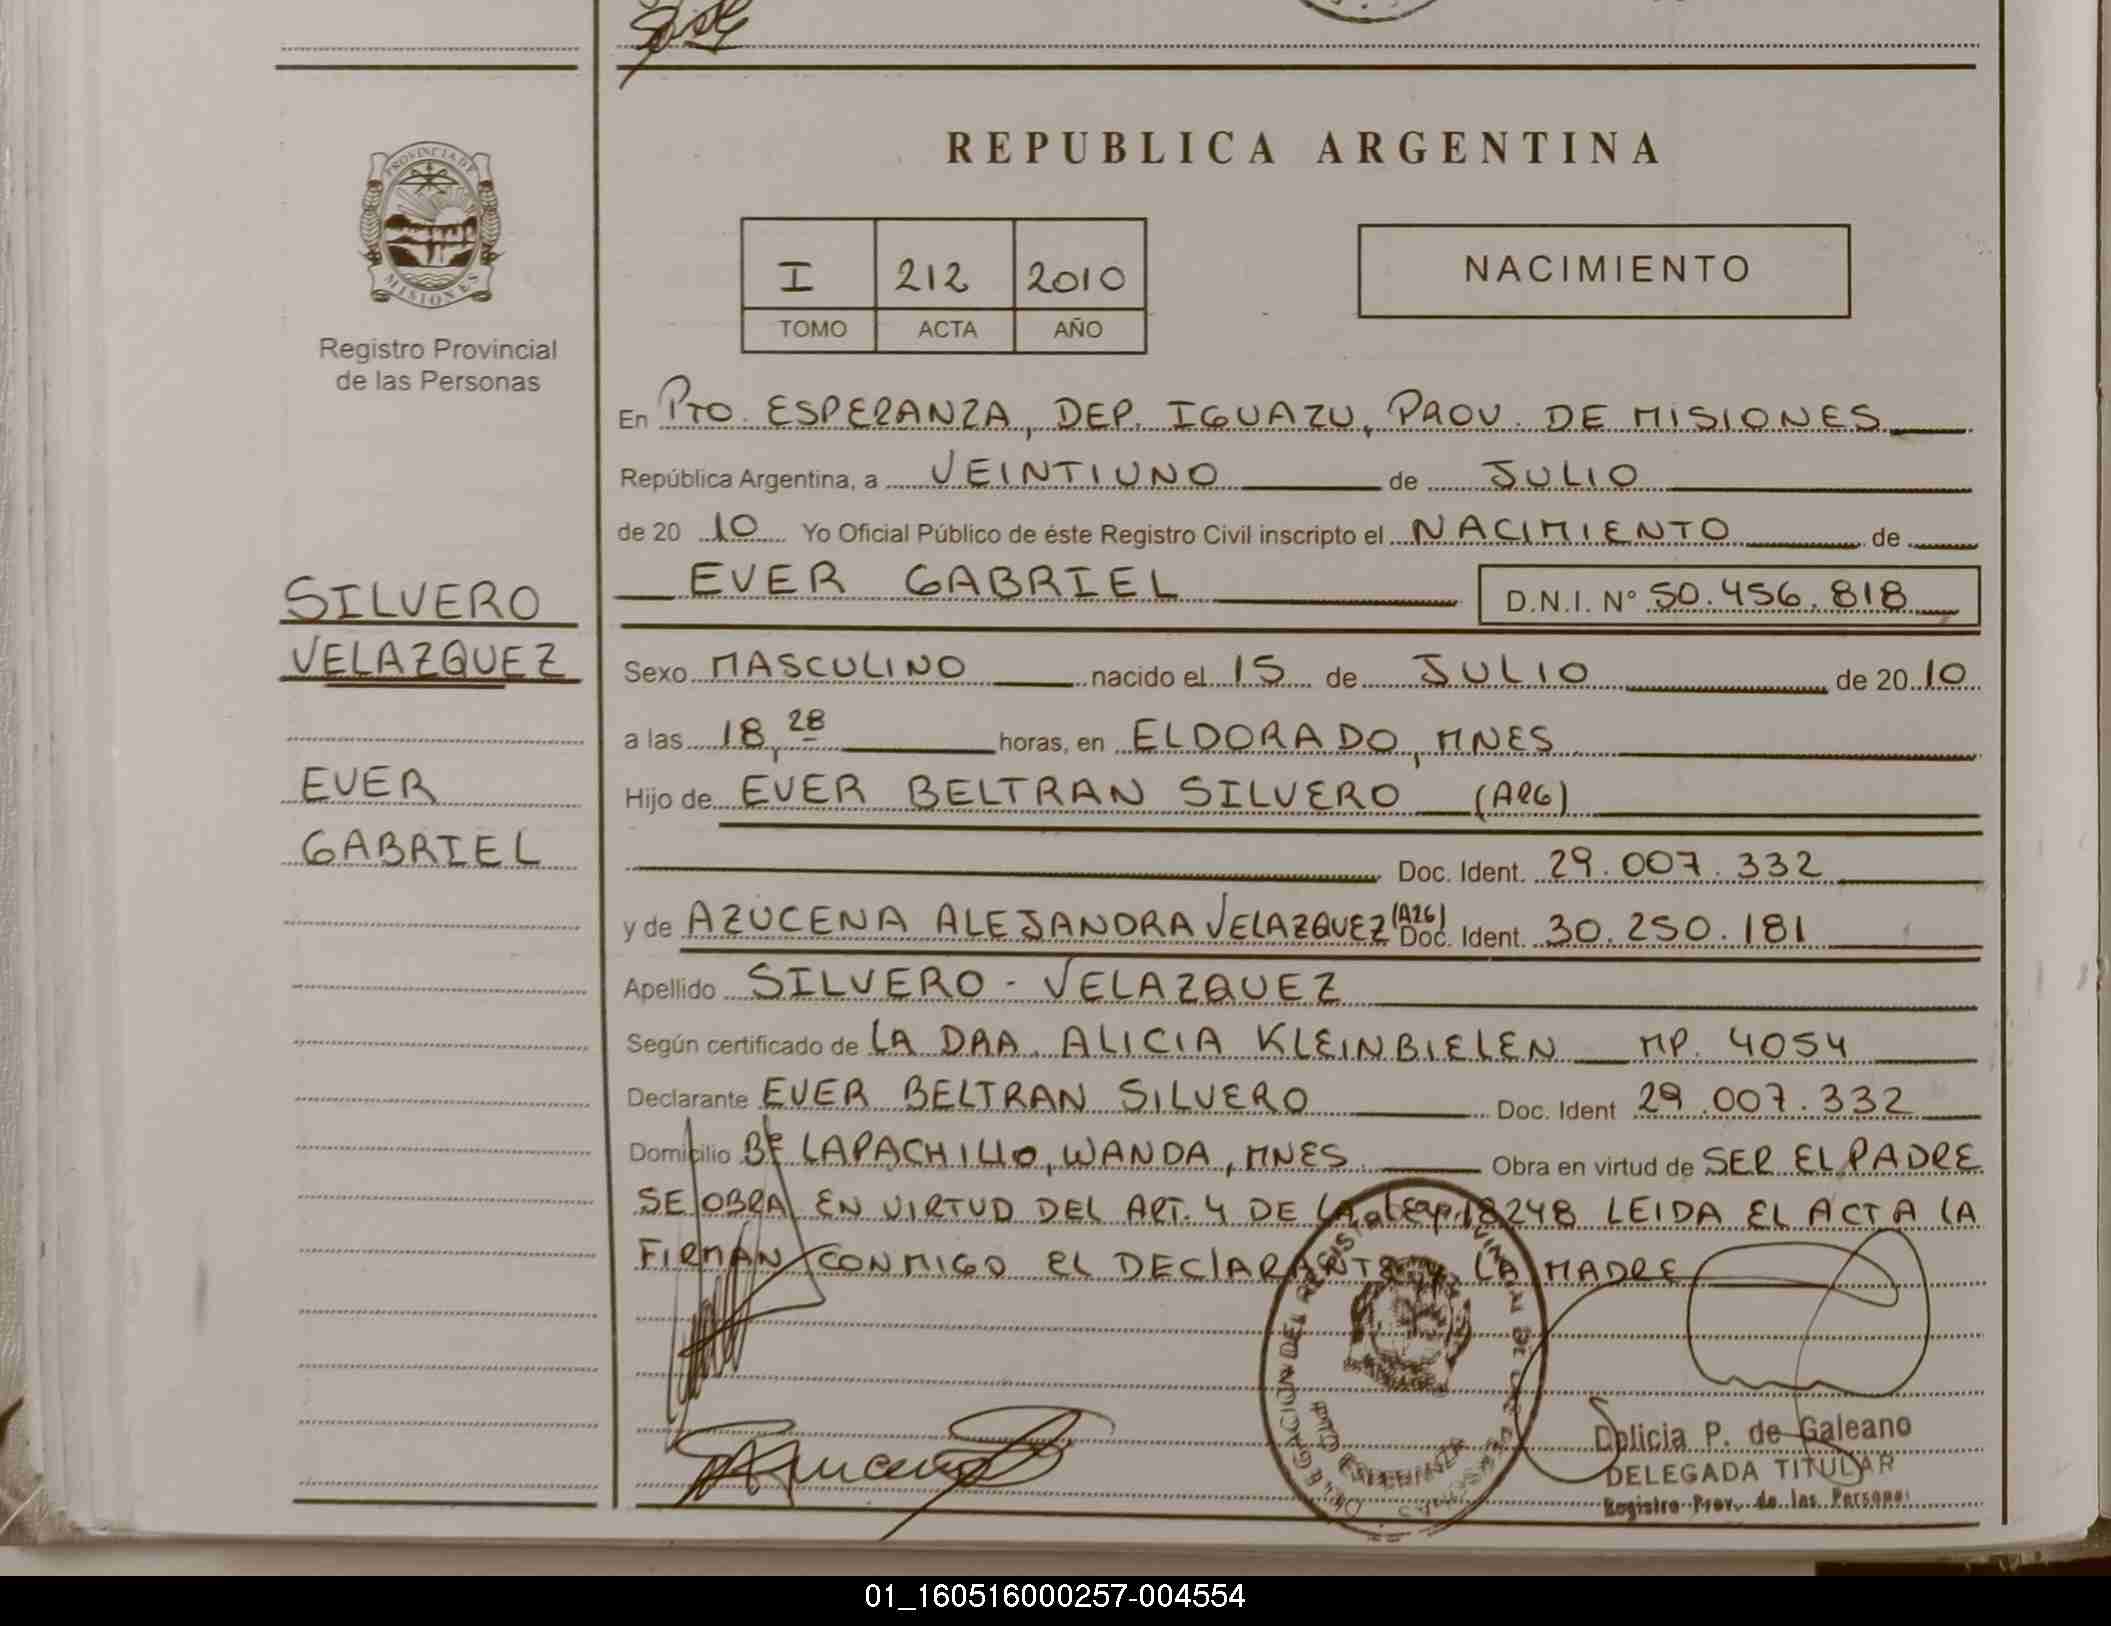 REPUBLICA ARGENTINA
PROVINCIA DE
MISIONES
Registro Provincial
de las Personas
I 212 2010
TOMO ACTA AÑO
NACIMIENTO
En Pto. ESPERANZA, DEP. IGUAZU, PROV. DE MISIONES
República Argentina, a VEINTIUNO de JULIO
de 20 10 Yo Oficial Público de éste Registro Civil inscripto el NACIMIENTO de
EVER GABRIEL D.N.I. N° 50.456.818
SILVERO
VELAZQUEZ
EVER
GABRIEL
Sexo MASCULINO nacido el 15 de JULIO de 20 10
a las 18,28 horas, en ELDORADO, MNES
Hijo de EVER BELTRAN SILVERO (ARG)
Doc. Ident. 29.007.332
y de AZUCENA ALEJANDRA VELAZQUEZ (ARG) Doc. Ident. 30.250.181
Apellido SILVERO - VELAZQUEZ
Según certificado de LA DRA. ALICIA KLEINBIELEN MP. 4054
Declarante EVER BELTRAN SILVERO Doc. Ident 29.007.332
Domicilio Bº LAPACHILLO, WANDA, MNES Obra en virtud de SER EL PADRE
SE OBRA EN VIRTUD DEL ART. 4 DE LA Ley 18248 LEIDA EL ACTA LA
FIRMAN CONMIGO EL DECLARANTE Y LA MADRE
DELEGACION DEL REGISTRO PROVINCIAL DE LAS PERSONAS
PTO ESPERANZA
Dolicia P. de Galeano
DELEGADA TITULAR
Registro Prov. de las Personas
01_160516000257-004554